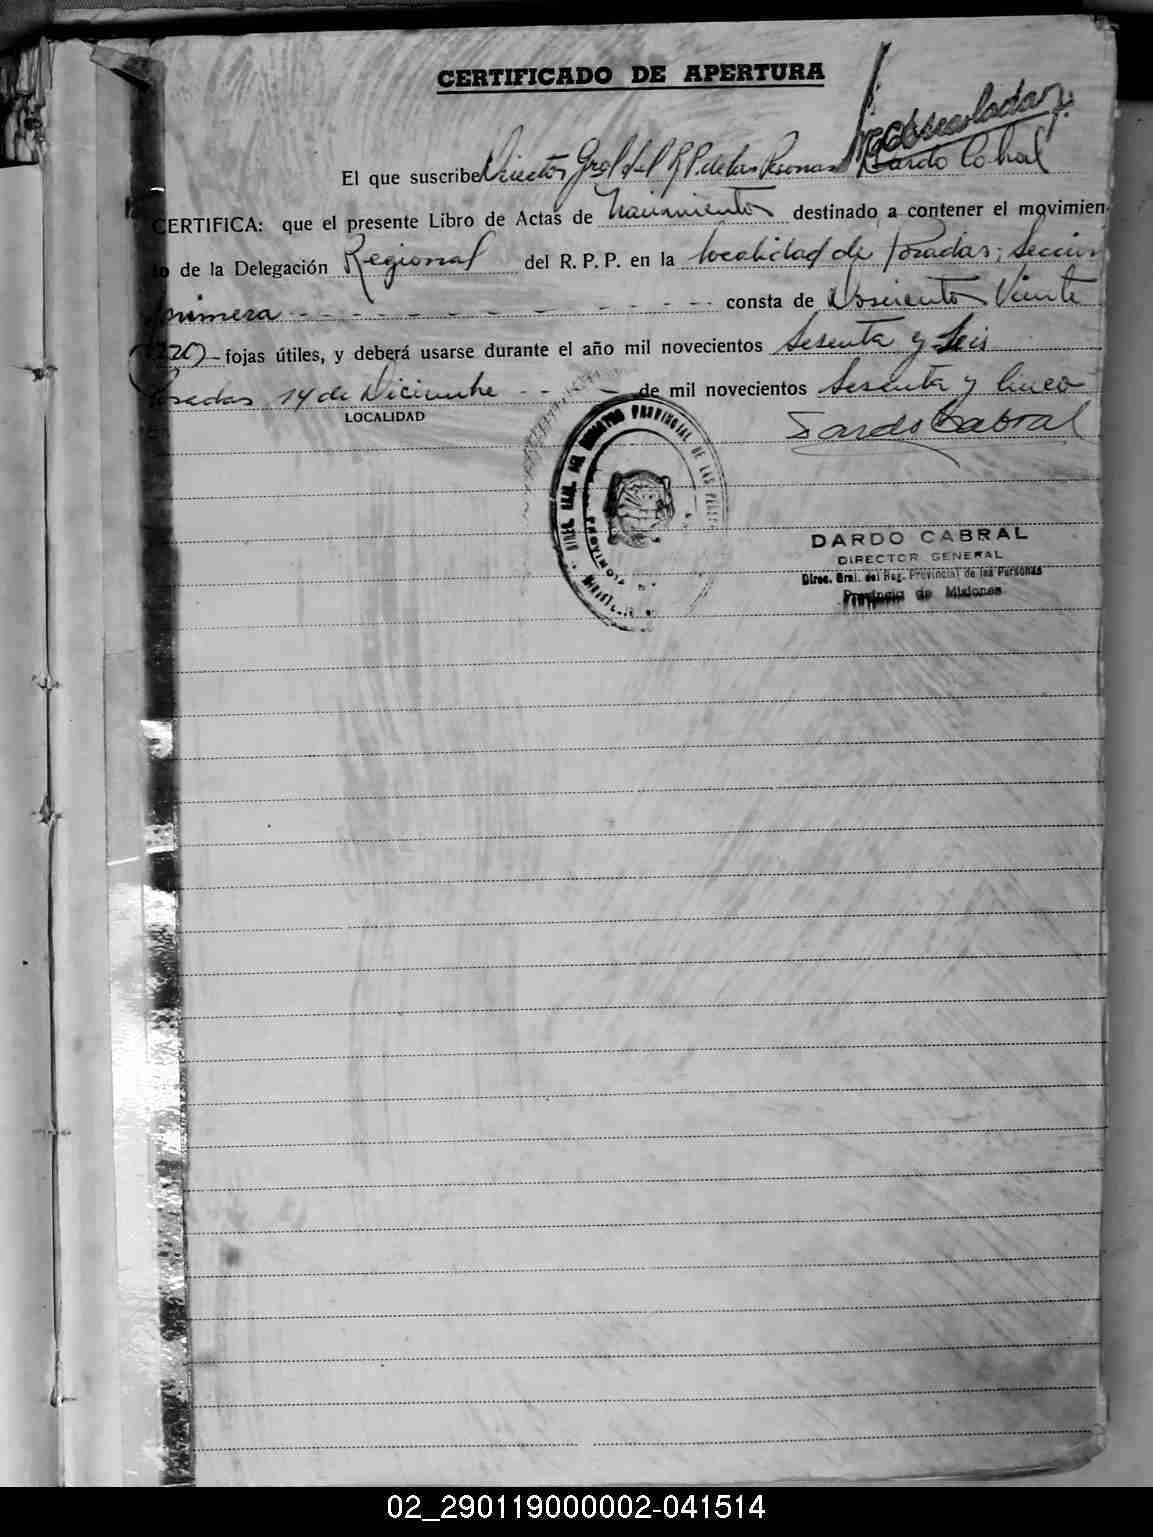 CERTIFICADO DE APERTURA
El que suscribe Director Gral del R P. de las Personas Dardo Cabral
CERTIFICA: que el presente Libro de Actas de Nacimientos destinado a contener el movimien-
to de la Delegación Regional del R. P. P. en la localidad de Posadas; Sección
primera - - - - - - - - - consta de Doscientos Veinte
(220) fojas útiles, y deberá usarse durante el año mil novecientos Sesenta y Seis
Posadas 14 de Diciembre - - - de mil novecientos Sesenta y Cinco
LOCALIDAD
Dardo Cabral
DIREC. GRAL. DEL REGISTRO PROVINCIAL DE LAS
PROVINCIA
DARDO CABRAL
DIRECTOR GENERAL
Direc. Gral. del Reg. Provincial de las Personas
Provincia de Misiones
02_290119000002-041514